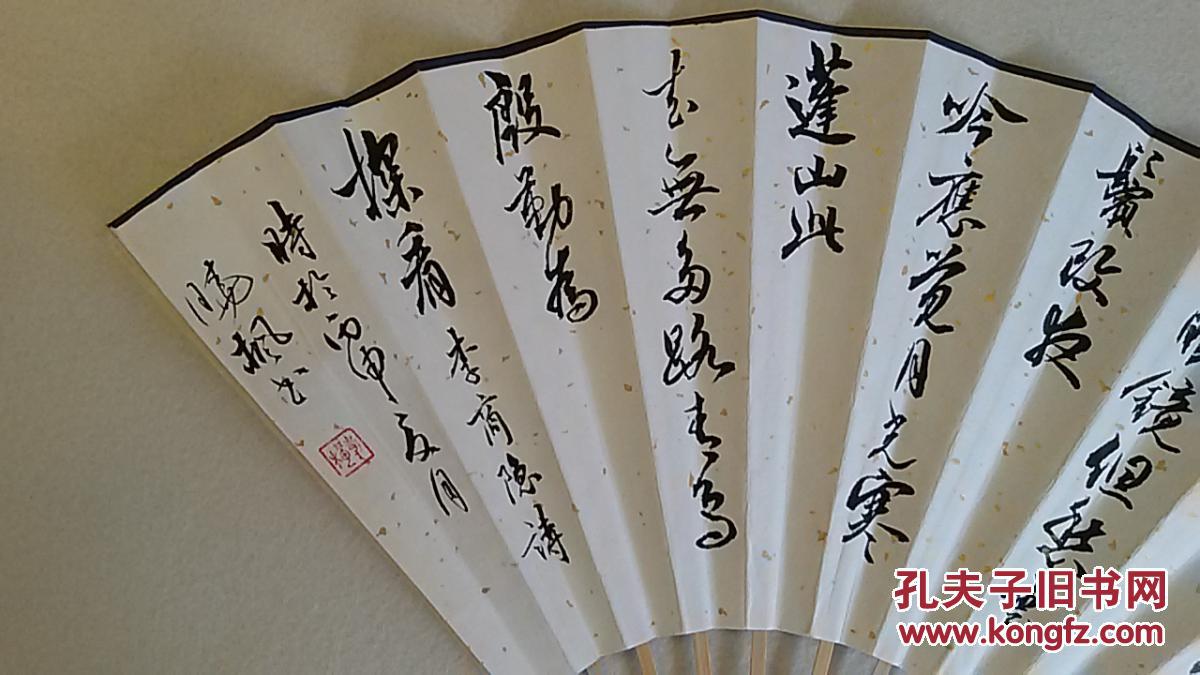 曉鏡但愁雲
鬢改夜
吟應覺月光寒
蓬山此
去無多路青鳥
殷勤為
探看 李商隐詩
時於丙申夏月
楓书
孔夫子旧书网
www.kongfz.com